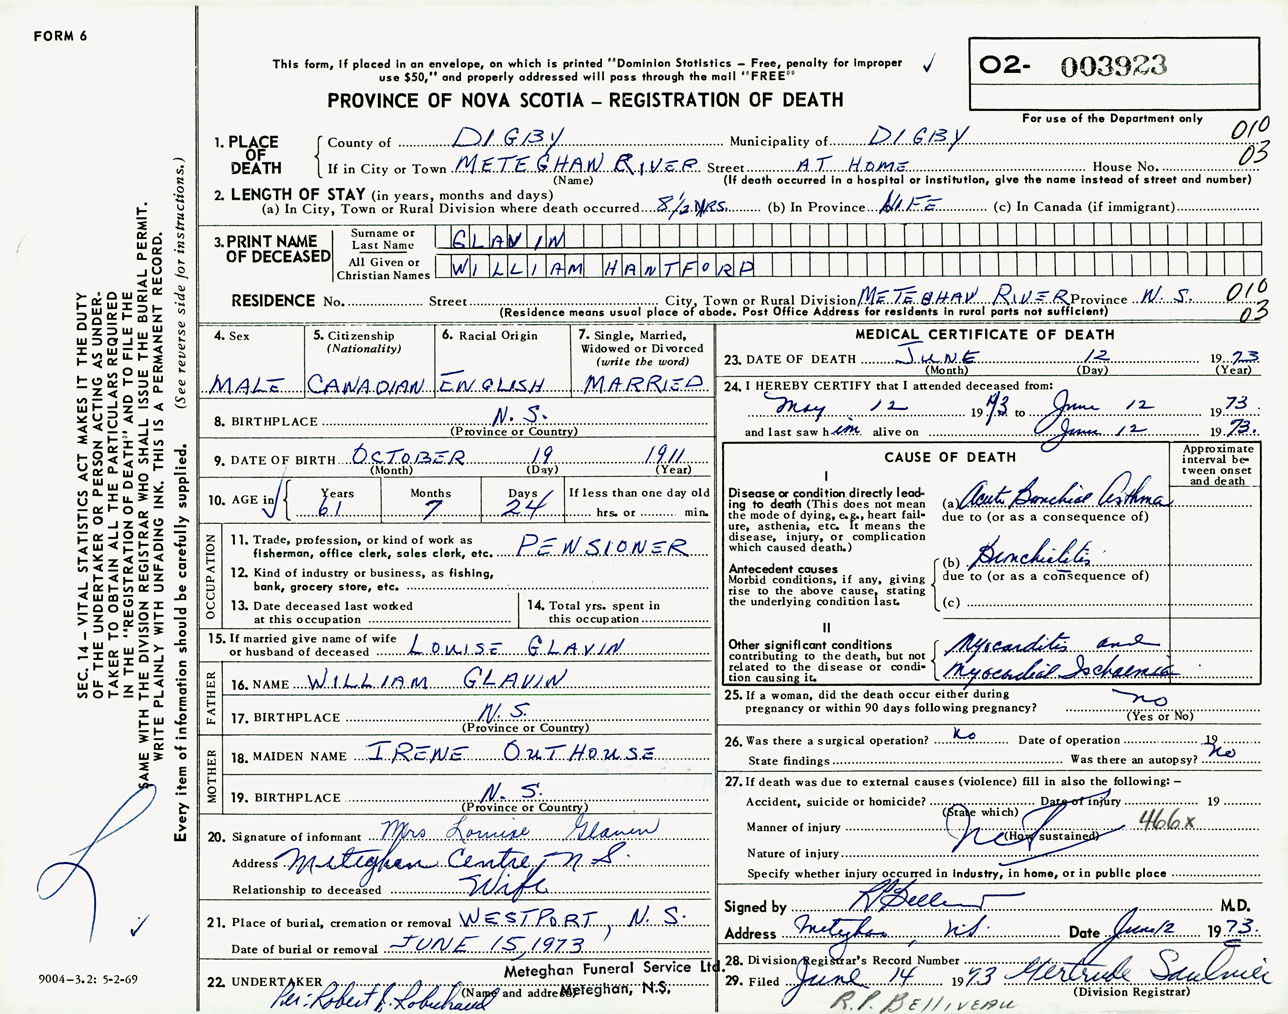 FORM 6
This form, if placed in an envelope, on which is printed "Dominion Statistics – Free, penalty for improper
use $50," and properly addressed will pass through the mail "FREE"
PROVINCE OF NOVA SCOTIA – REGISTRATION OF DEATH
O2- 003923
For use of the Department only
010
03
1. PLACE OF DEATH
County of DIGBY Municipality of DIGBY
If in City or Town METEGHAN RIVER Street AT HOME House No.
(Name) (If death occurred in a hospital or institution, give the name instead of street and number)
2. LENGTH OF STAY (in years, months and days)
(a) In City, Town or Rural Division where death occurred 8 1/2 YRS. (b) In Province LIFE (c) In Canada (if immigrant)
3. PRINT NAME OF DECEASED
Surname or Last Name GLAVIN
All Given or Christian Names WILLIAM HANTFORD
RESIDENCE No. Street City, Town or Rural Division METEGHAN RIVER Province N.S. 010
03
(Residence means usual place of abode. Post Office Address for residents in rural parts not sufficient)
4. Sex
MALE
5. Citizenship
(Nationality)
CANADIAN
6. Racial Origin
ENGLISH
7. Single, Married,
Widowed or Divorced
(write the word)
MARRIED
8. BIRTHPLACE N.S.
(Province or Country)
9. DATE OF BIRTH OCTOBER 19 1911
(Month) (Day) (Year)
10. AGE in Years Months Days If less than one day old
61 7 24 hrs. or min.
OCCUPATION
11. Trade, profession, or kind of work as
fisherman, office clerk, sales clerk, etc. PENSIONER
12. Kind of industry or business, as fishing,
bank, grocery store, etc.
13. Date deceased last worked
at this occupation
14. Total yrs. spent in
this occupation
15. If married give name of wife
or husband of deceased LOUISE GLAVIN
FATHER
16. NAME WILLIAM GLAVIN
17. BIRTHPLACE N.S.
(Province or Country)
MOTHER
18. MAIDEN NAME IRENE OUTHOUSE
19. BIRTHPLACE N.S.
(Province or Country)
20. Signature of informant Mrs Louise Glavin
Address Meteghan Centre, N.S.
Relationship to deceased Wife
21. Place of burial, cremation or removal WESTPORT, N.S.
Date of burial or removal JUNE 15, 1973
22. UNDERTAKER Meteghan Funeral Service Ltd.
(Name and address) Meteghan, N.S.
Per: Robert J. Robichaud
MEDICAL CERTIFICATE OF DEATH
23. DATE OF DEATH JUNE 12 1973
(Month) (Day) (Year)
24. I HEREBY CERTIFY that I attended deceased from:
May 12 1973 to June 12 1973
and last saw him alive on June 12 1973.
CAUSE OF DEATH
Approximate interval between onset and death
I
Disease or condition directly lead-
ing to death (This does not mean
the mode of dying, e.g., heart fail-
ure, asthenia, etc. It means the
disease, injury, or complication
which caused death.)
(a) Acute Bronchial Asthma
due to (or as a consequence of)
Antecedent causes
Morbid conditions, if any, giving
rise to the above cause, stating
the underlying condition last.
(b) Bronchiolitis
due to (or as a consequence of)
(c)
II
Other significant conditions
contributing to the death, but not
related to the disease or condi-
tion causing it.
Myocarditis and
Myocardial Ischaemia
25. If a woman, did the death occur either during
pregnancy or within 90 days following pregnancy? no
(Yes or No)
26. Was there a surgical operation? no Date of operation 19
State findings Was there an autopsy? no
27. If death was due to external causes (violence) fill in also the following: –
Accident, suicide or homicide? Date of injury 19
(State which)
Manner of injury 466x
(How sustained)
Nature of injury
Specify whether injury occurred in industry, in home, or in public place
Signed by M.D.
Address Meteghan, N.S. Date June 12 1973.
28. Division Registrar's Record Number
29. Filed June 14 1973 Gertrude Saulnier
(Division Registrar)
R.P. BELLIVEAU
SEC. 14 – VITAL STATISTICS ACT MAKES IT THE DUTY
OF THE UNDERTAKER OR PERSON ACTING AS UNDER-
TAKER TO OBTAIN ALL THE PARTICULARS REQUIRED
IN THE "REGISTRATION OF DEATH" AND TO FILE THE
SAME WITH THE DIVISION REGISTRAR WHO SHALL ISSUE THE BURIAL PERMIT.
WRITE PLAINLY WITH UNFADING INK. THIS IS A PERMANENT RECORD.
Every item of information should be carefully supplied. (See reverse side for instructions.)
9004-3.2: 5-2-69